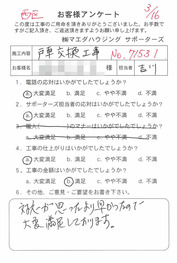 西区
お客様アンケート
3/16
この度は工事のご用命を頂きありがとうございました。お手数で
すがご記入頂き、ご返送頂きますようお願い申し上げます。
㈱マエダハウジング サポーターズ
施工内容 戸車交換工事 No,71531
お名前 様 担当者 吉川
1. 電話の対応はいかがでしたでしょうか?
a. 大変満足 b. 満足 c. やや不満 d. 不満
2. サポーターズ担当者の対応はいかがでしたでしょうか?
a. 大変満足 b. 満足 c. やや不満 d. 不満
のマナーはいかがでしたでしょうか?
a. 大変満足 b. 満足 c. やや不満 d. 不満
4. 工事の仕上がりはいかがでしたでしょうか?
a. 大変満足 b. 満足 c. やや不満 d. 不満
5. 工事の金額はいかがでしたでしょうか?
a. 大変満足 b. 満足 c. やや不満 d. 不満
6. その他、ご意見・ご要望をお書き下さい。
対応が思ったより早かったので
大変満足しております。